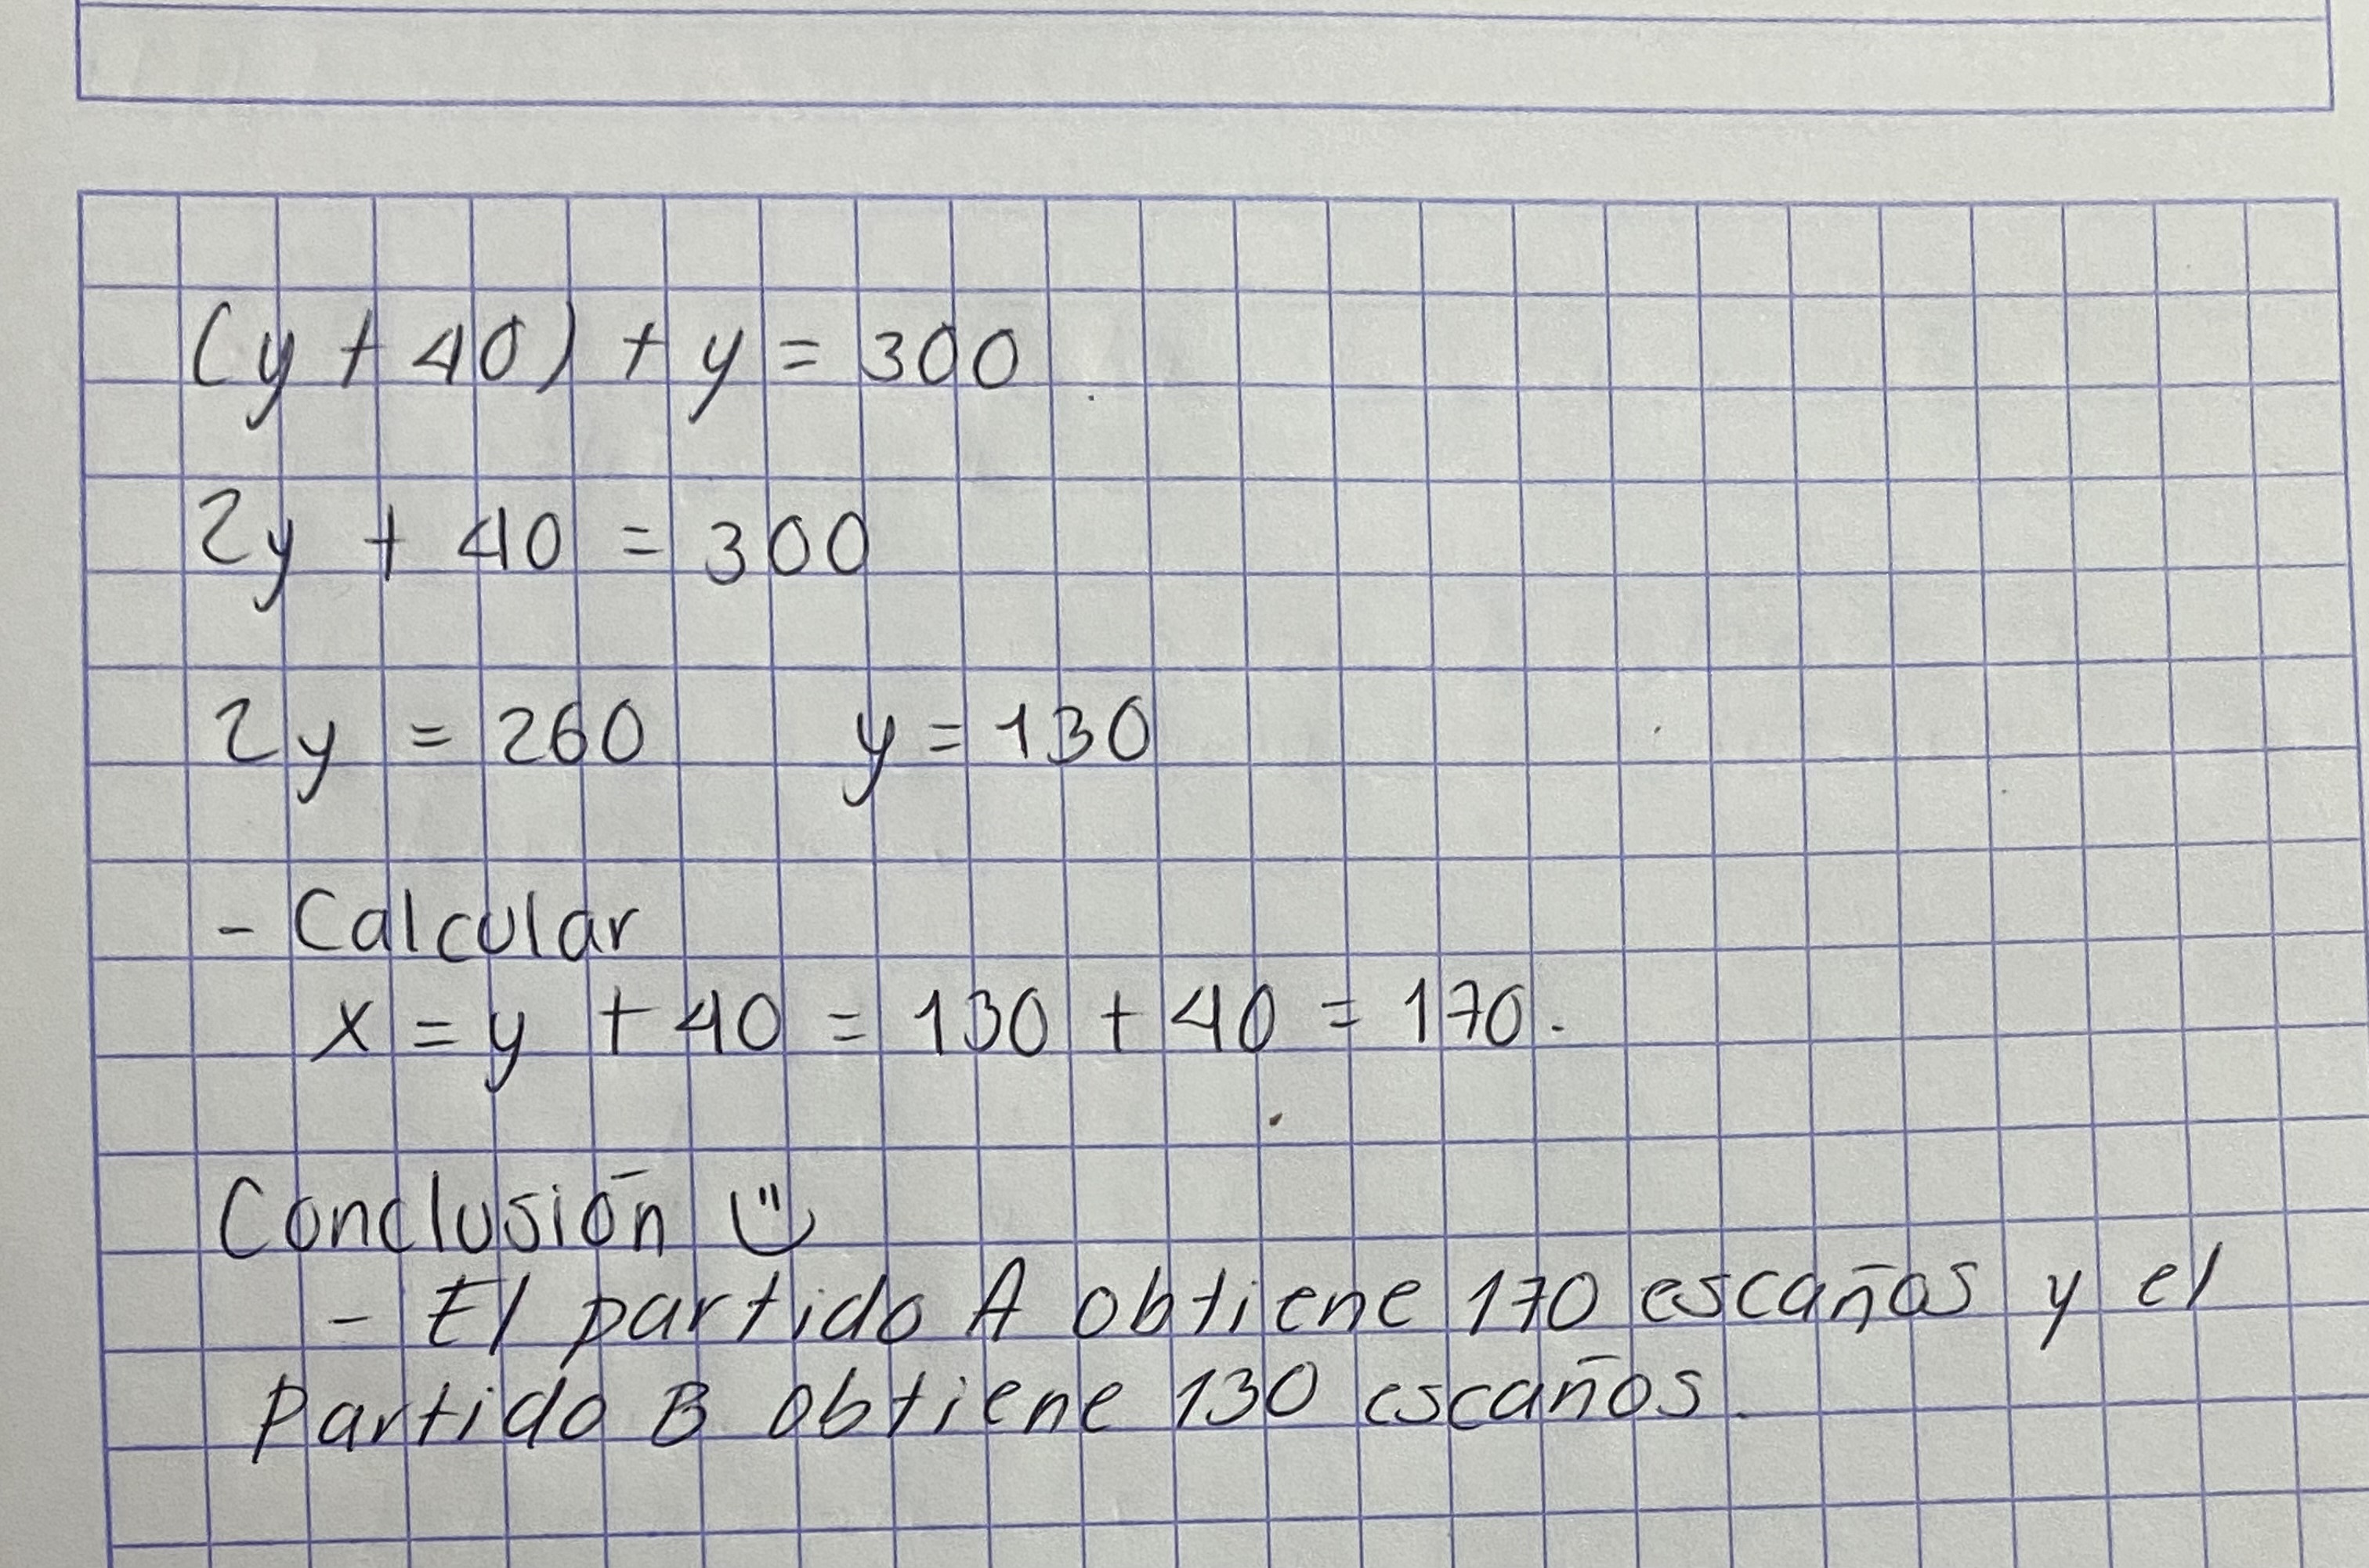 (y + 40) + y = 300
2y + 40 = 300
2y = 260 y = 130
- Calcular
x = y + 40 = 130 + 40 = 170.
Conclusión
- El partido A obtiene 170 escaños y el
partido B obtiene 130 escaños.